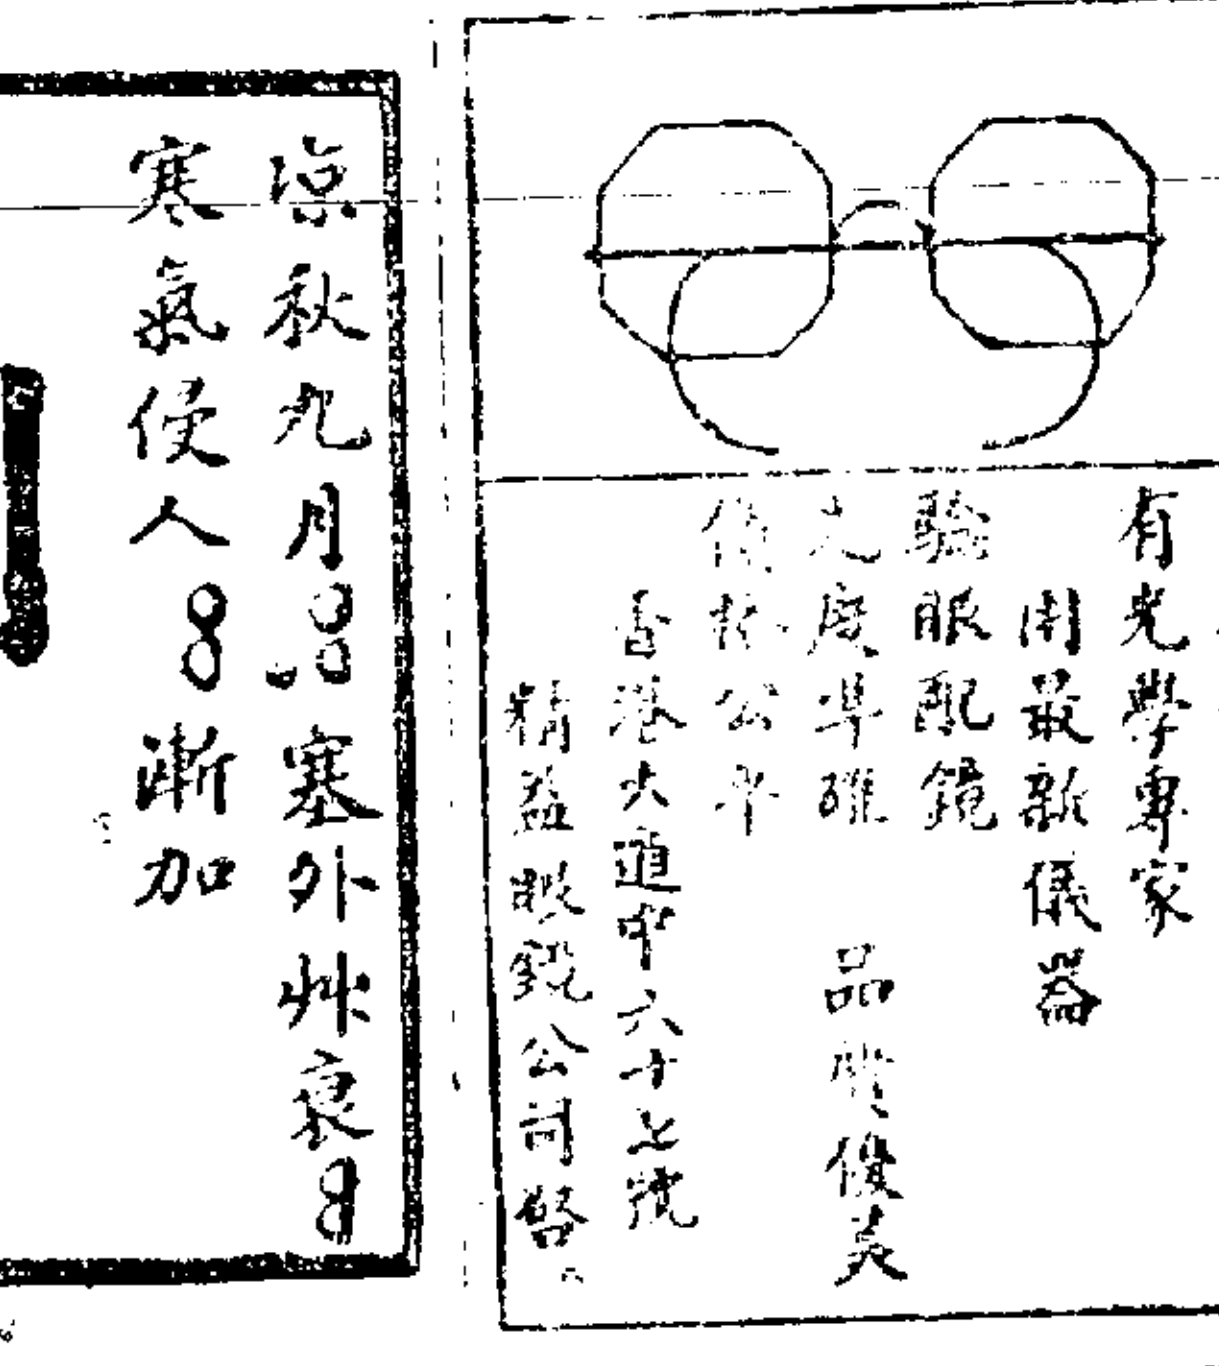 有光學專家
用最新儀器
驗眼配鏡
之度準確 品質優美
價格公平
香港大道中六十七號
精益眼鏡公司啓
涼秋九月 塞外艸衰
寒氣侵人 漸加